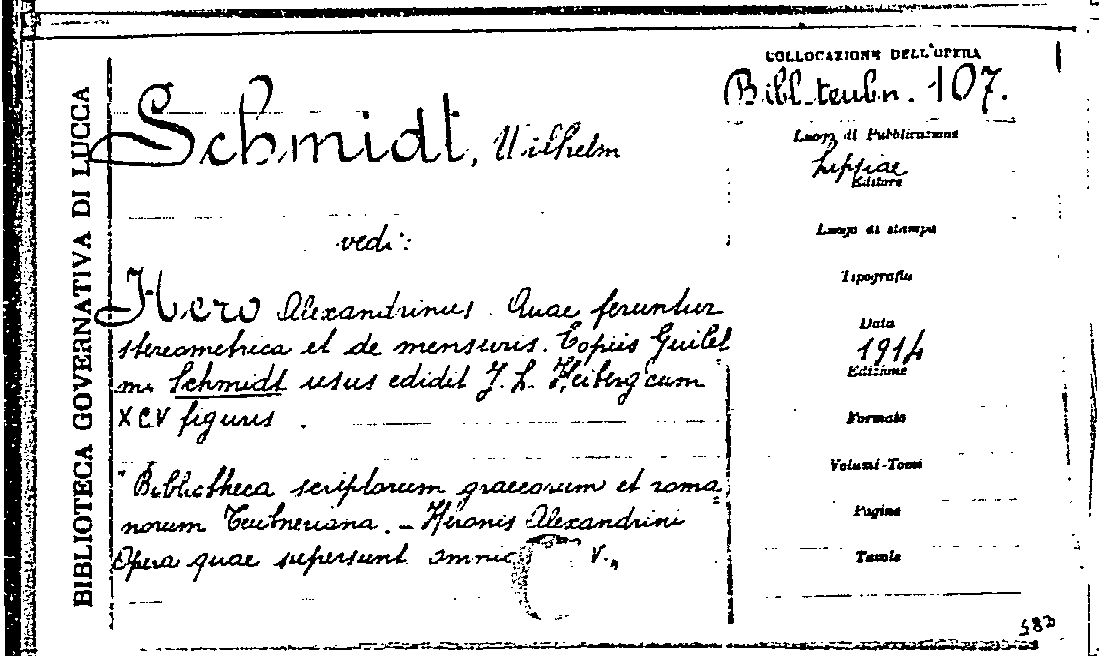 BIBLIOTECA GOVERNATIVA DI LUCCA
COLLOCAZIONE DELL'OPERA
Bibl. teubn. 107.
Schmidt, Wilhelm
Luogo di Pubblicazione
Lipsiae
Editore
vedi:
Luogo di stampa
Tipografia
Hero Alexandrinus. Quae feruntur
stereometrica et de mensuris. Copiis Guilel
mi Schmidt usus edidit J. L. Heiberg cum
XCV figuris.
Data
1914
Edizione
Formato
Volumi-Tomi
Pagine
Tavole
"Bibliotheca scriptorum graecorum et roma
norum Teubneriana. - Heronis Alexandrini
Opera quae supersunt omnia V."